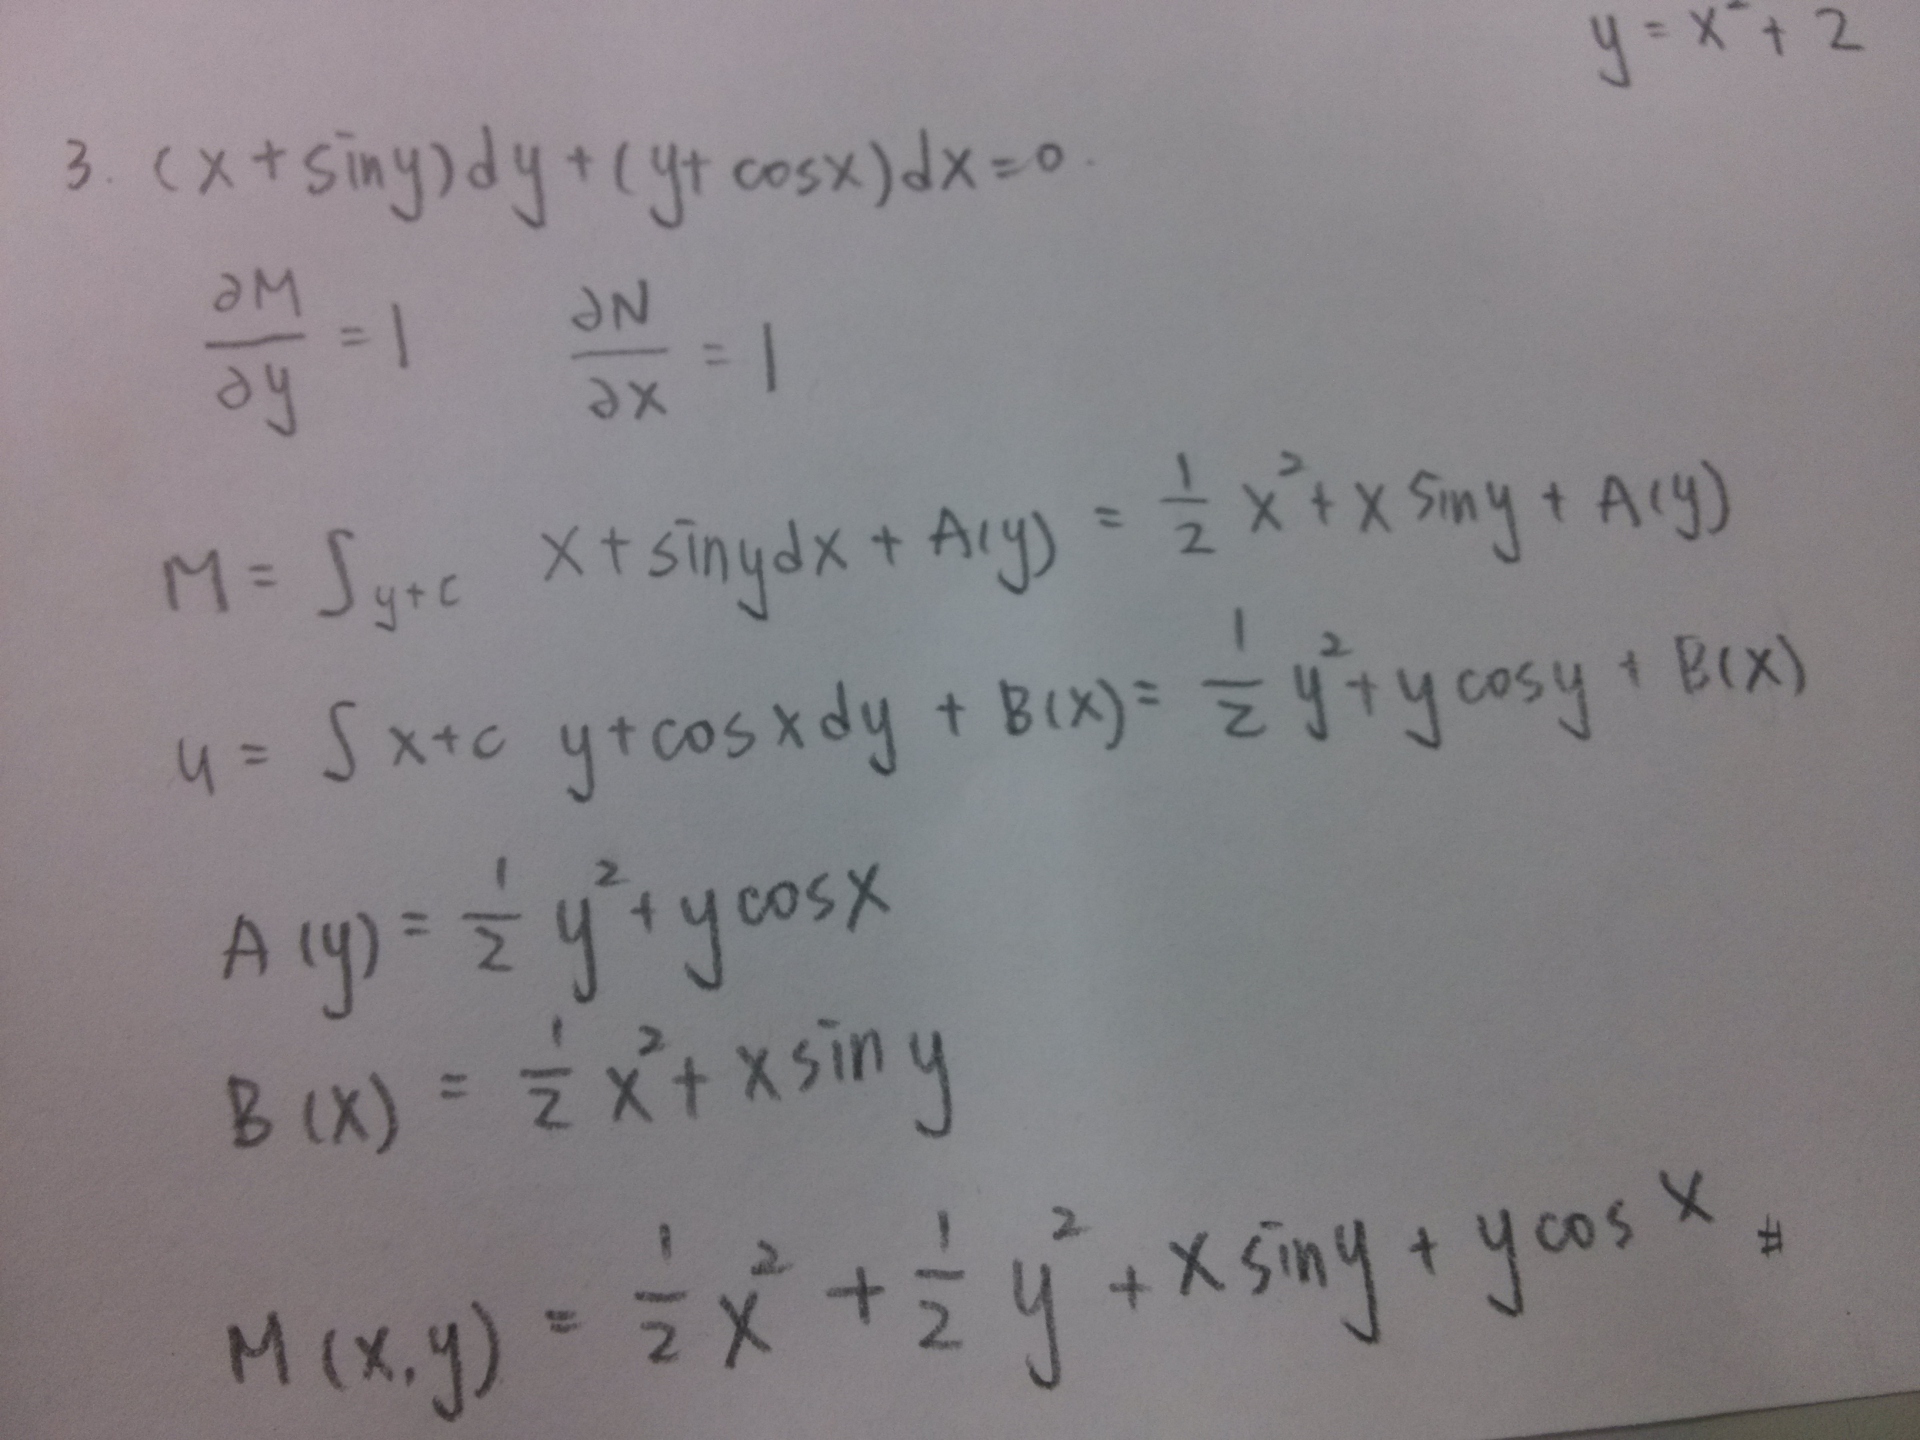 y = x² + 2
3. (x + siny)dy + (y + cosx)dx = 0.
∂M/∂y = 1   ∂N/∂x = 1
M = ∫y+c x + siny dx + A(y) = 1/2 x² + x siny + A(y)
u = ∫x+c y + cosx dy + B(x) = 1/2 y² + y cosy + B(x)
A(y) = 1/2 y² + y cosx
B(x) = 1/2 x² + x siny
M(x,y) = 1/2 x² + 1/2 y² + x siny + y cosx #